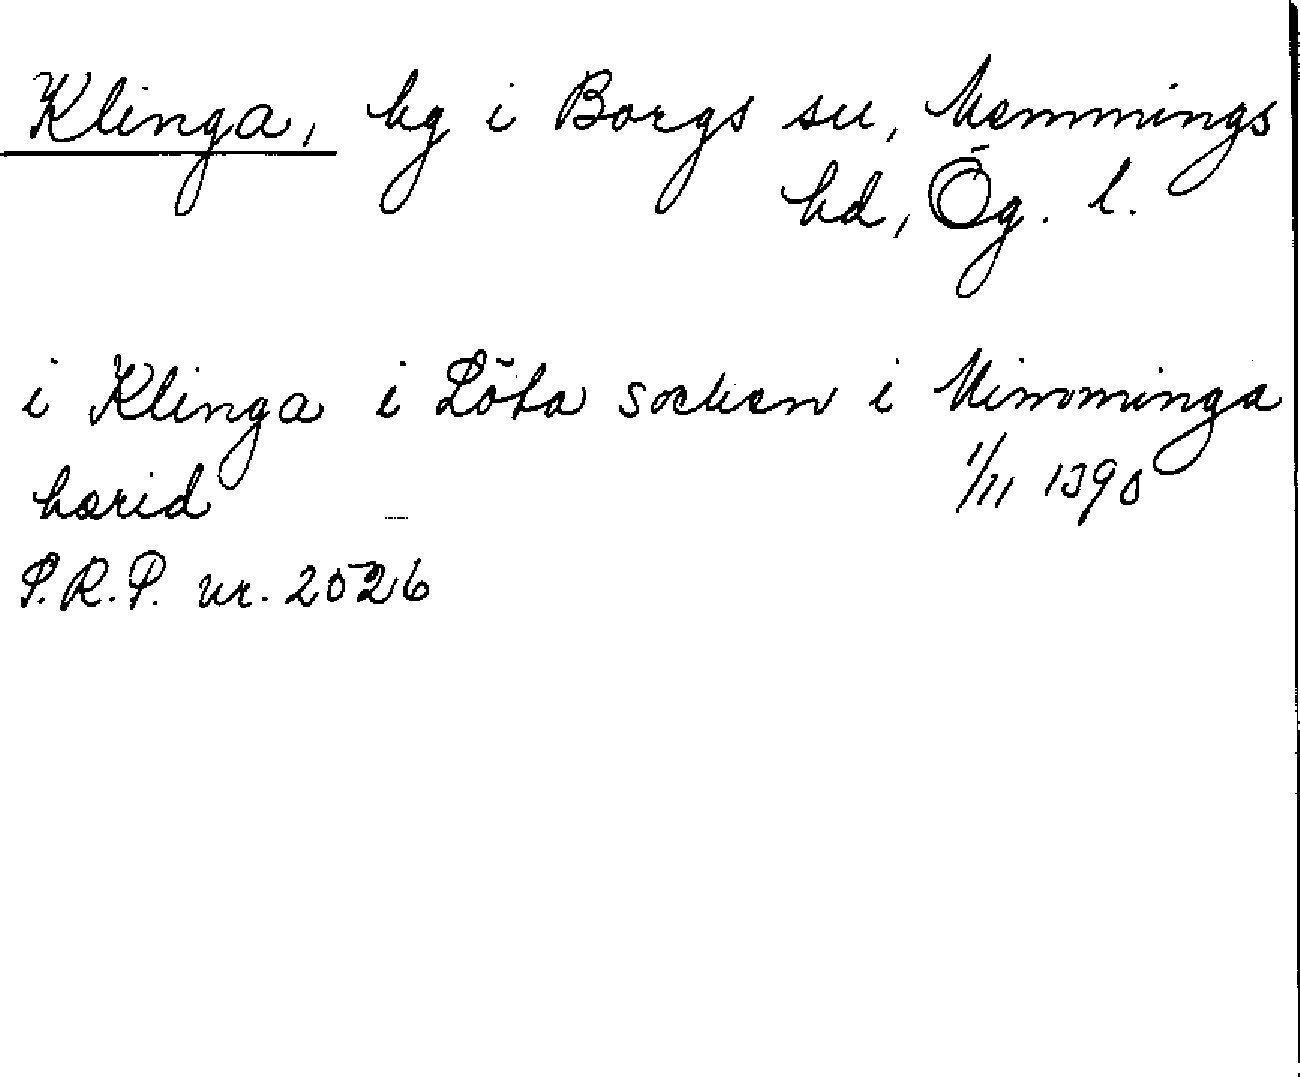 Klinga, by i Borgs sn, Memmings
hd, Ög. l.
i Klinga i Löta socken i Mimminga
hærid 1/11 1390
S.R.P. nr. 2526